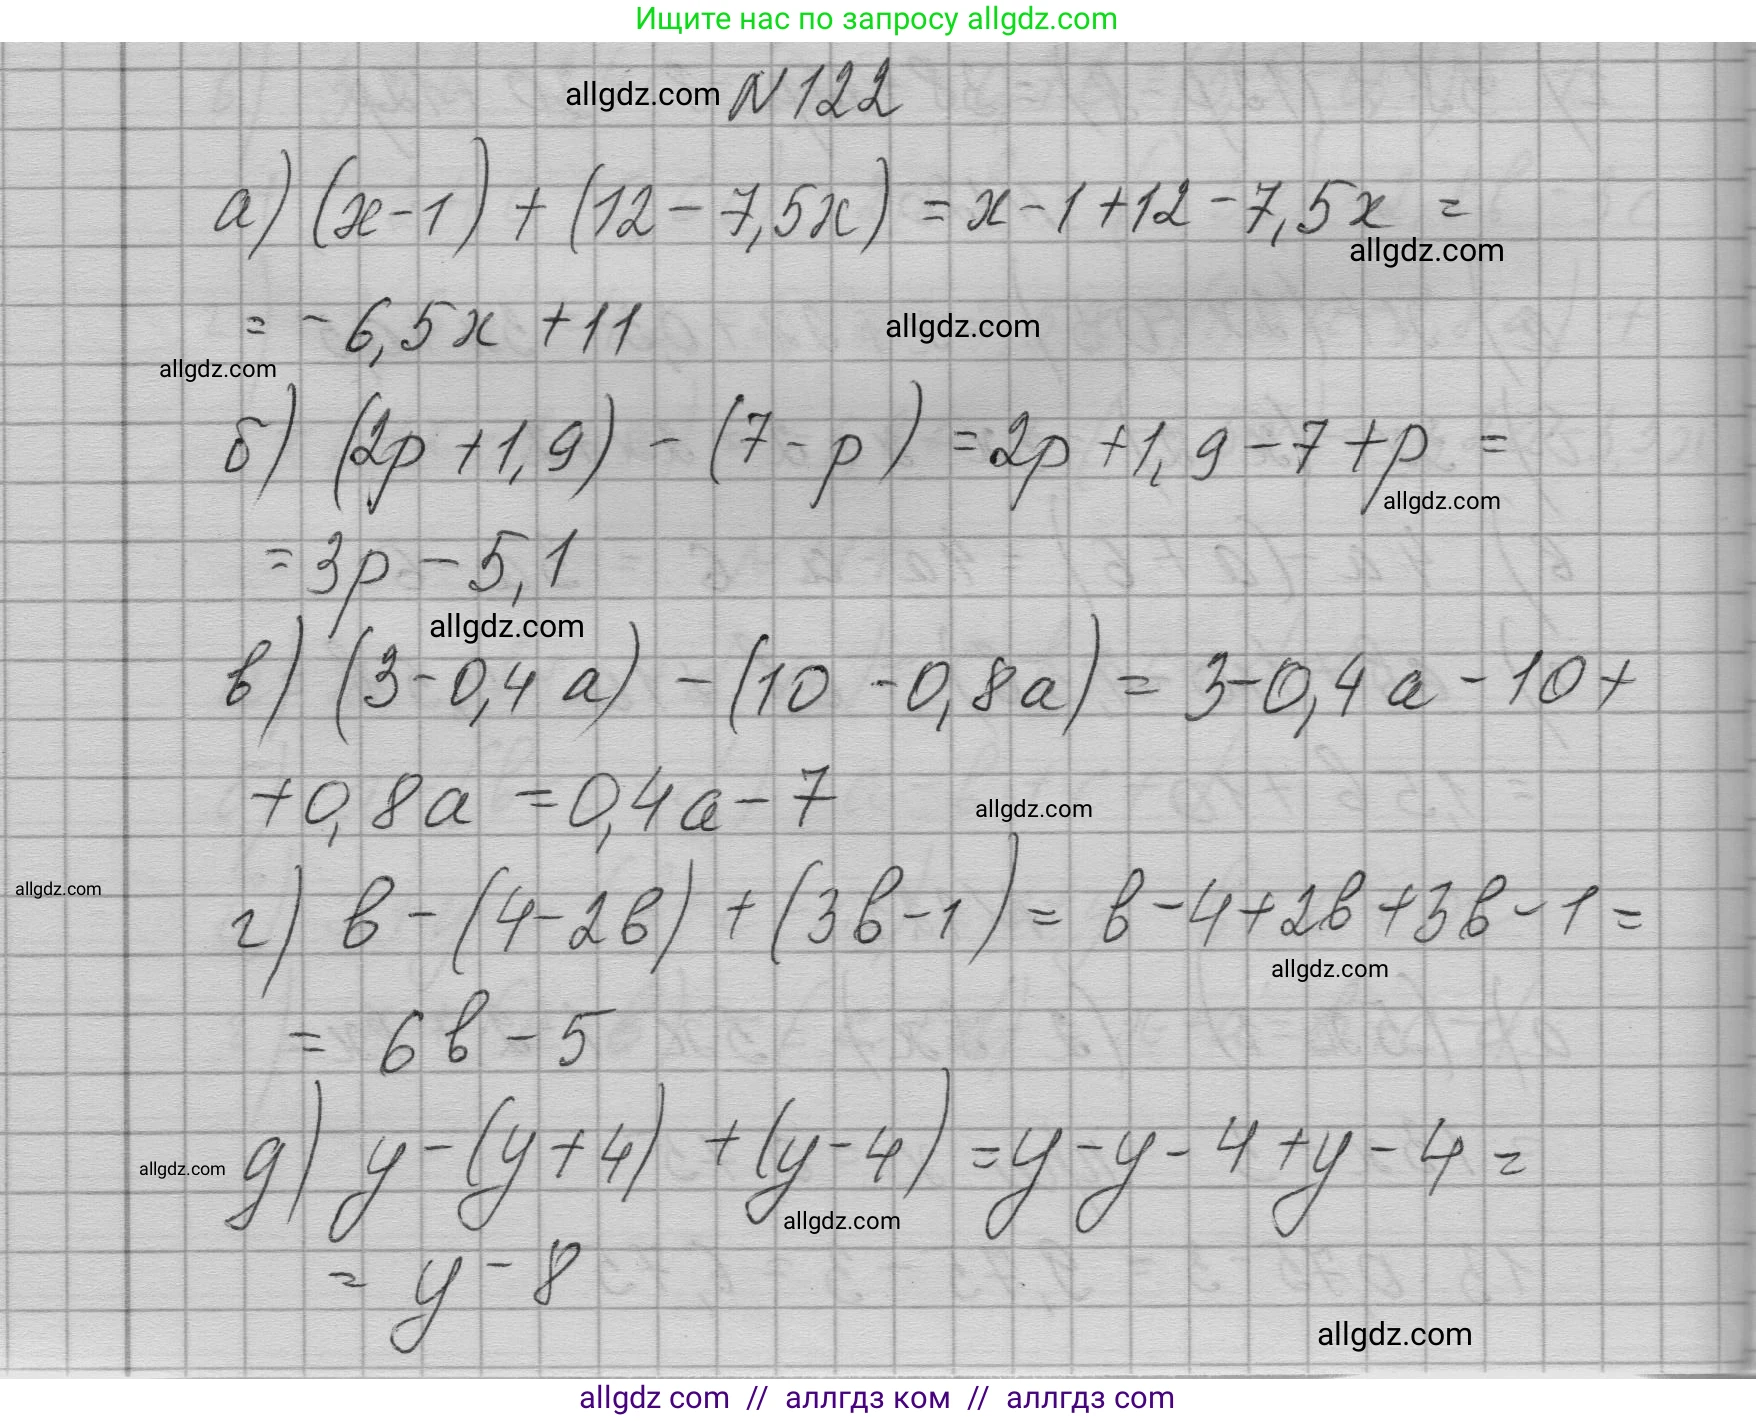 Ищите нас по запросу allgdz.com
allgdz.com N 122
а) (x-1) + (12 - 7,5x) = x - 1 + 12 - 7,5x =
allgdz.com
= -6,5x + 11
allgdz.com
allgdz.com
б) (2p + 1,9) - (7 - p) = 2p + 1,9 - 7 + p =
allgdz.com
= 3p - 5,1
allgdz.com
в) (3 - 0,4a) - (10 - 0,8a) = 3 - 0,4a - 10 +
+ 0,8a = 0,4a - 7
allgdz.com
allgdz.com
г) в - (4 - 2в) + (3в - 1) = в - 4 + 2в + 3в - 1 =
allgdz.com
= 6в - 5
allgdz.com д) y - (y + 4) + (y - 4) = y - y - 4 + y - 4 =
allgdz.com
= y - 8
allgdz.com
allgdz com // аллгдз ком // аллгдз com